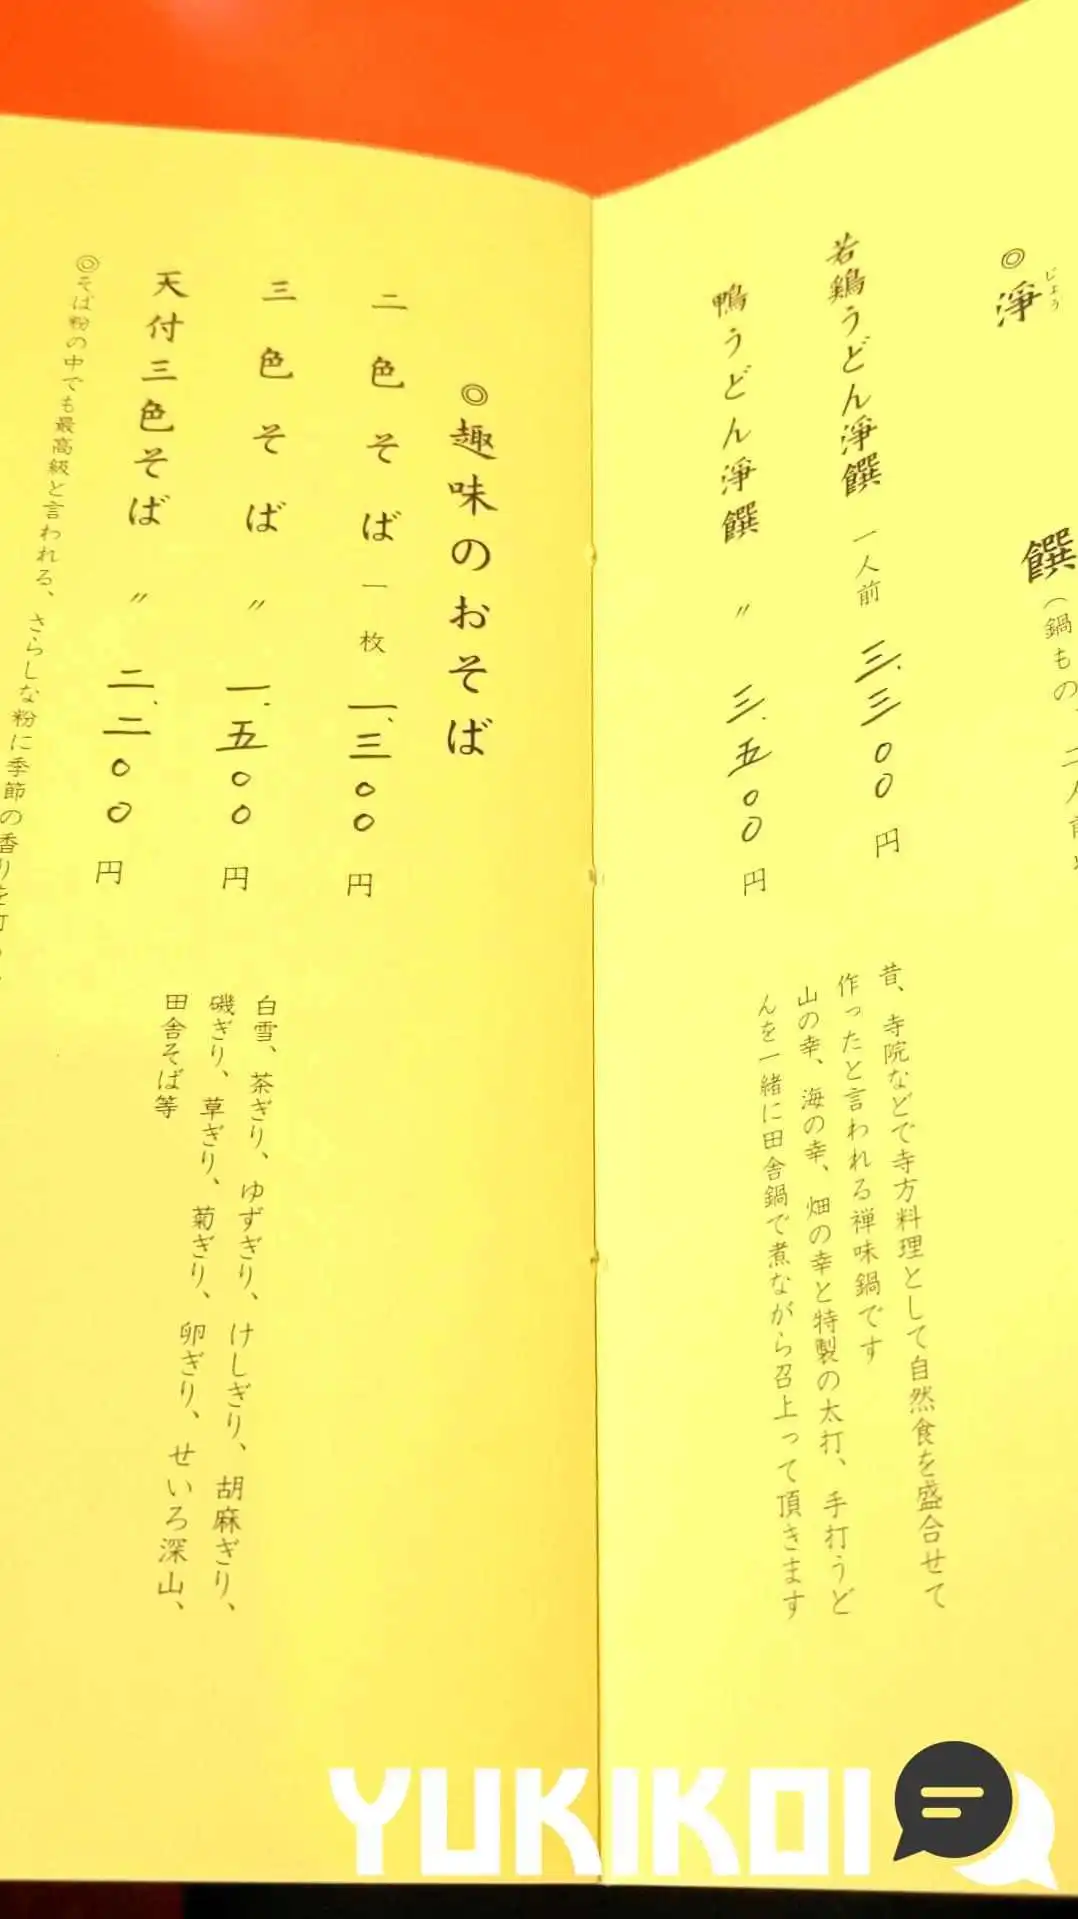 ◎淨
じょう
饌
(鍋もの、二人前
若鶏うどん淨饌 一人前 三、三〇〇円
鴨うどん淨饌 〃 三、五〇〇円
昔、寺院などで寺方料理として自然食を盛合せて
作ったと言われる禅味鍋です
山の幸、海の幸、畑の幸と特製の太打、手打うど
んを一緒に田舎鍋で煮ながら召上って頂きます
◎趣味のおそば
二色そば 一枚 一、三〇〇円
三色そば 〃 一、五〇〇円
天付三色そば 〃 二、二〇〇円
白雪、茶ぎり、ゆずぎり、けしぎり、胡麻ぎり、
磯ぎり、草ぎり、菊ぎり、卵ぎり、せいろ深山、
田舎そば等
◎そば粉の中でも最高級と言われる、さらしな粉に季節の香りを
YUKIKOI